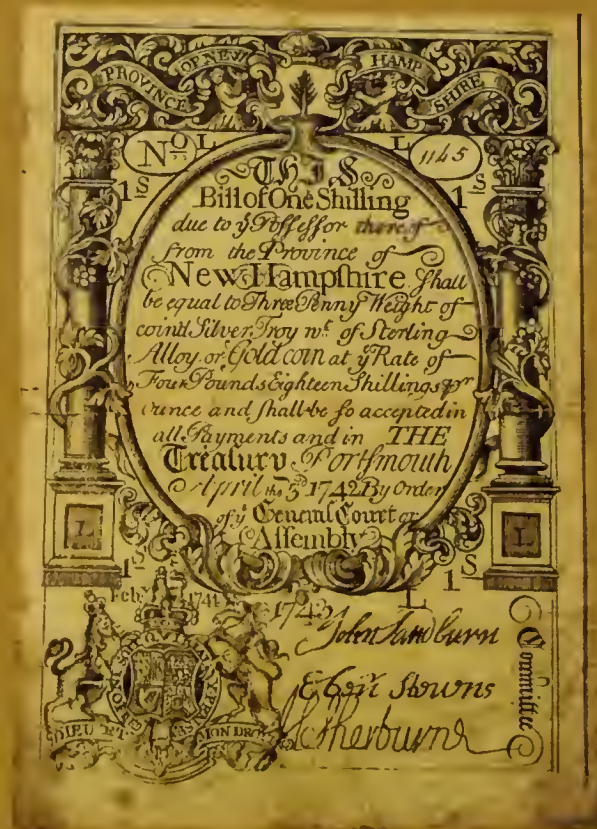 PROVINCE OF NEW HAMP SHIRE
No 1145
L L
1S 1S
THIS
Bill of One Shilling
due to ye Poſſeſſor thereof
from the Province of
New Hampſhire Shall
be equal to Three Penny Weight of
coind Silver, Troy wt. of Sterling
Alloy, or Gold coin at ye Rate of
Four Pounds Eighteen Shillings pr
ounce and ſhall be ſo accepted in
all Payments and in THE
Treaſury Portſmouth
April the 3d 1742 By Order
of ye General Court or
Aſſembly
L L
1S 1S
L
Feby. 1744
1742
HONI SOIT QUI MAL Y PENSE
DIEU ET MON DRO
John Sandburn
Eben Stevens
Sherburne
Committee